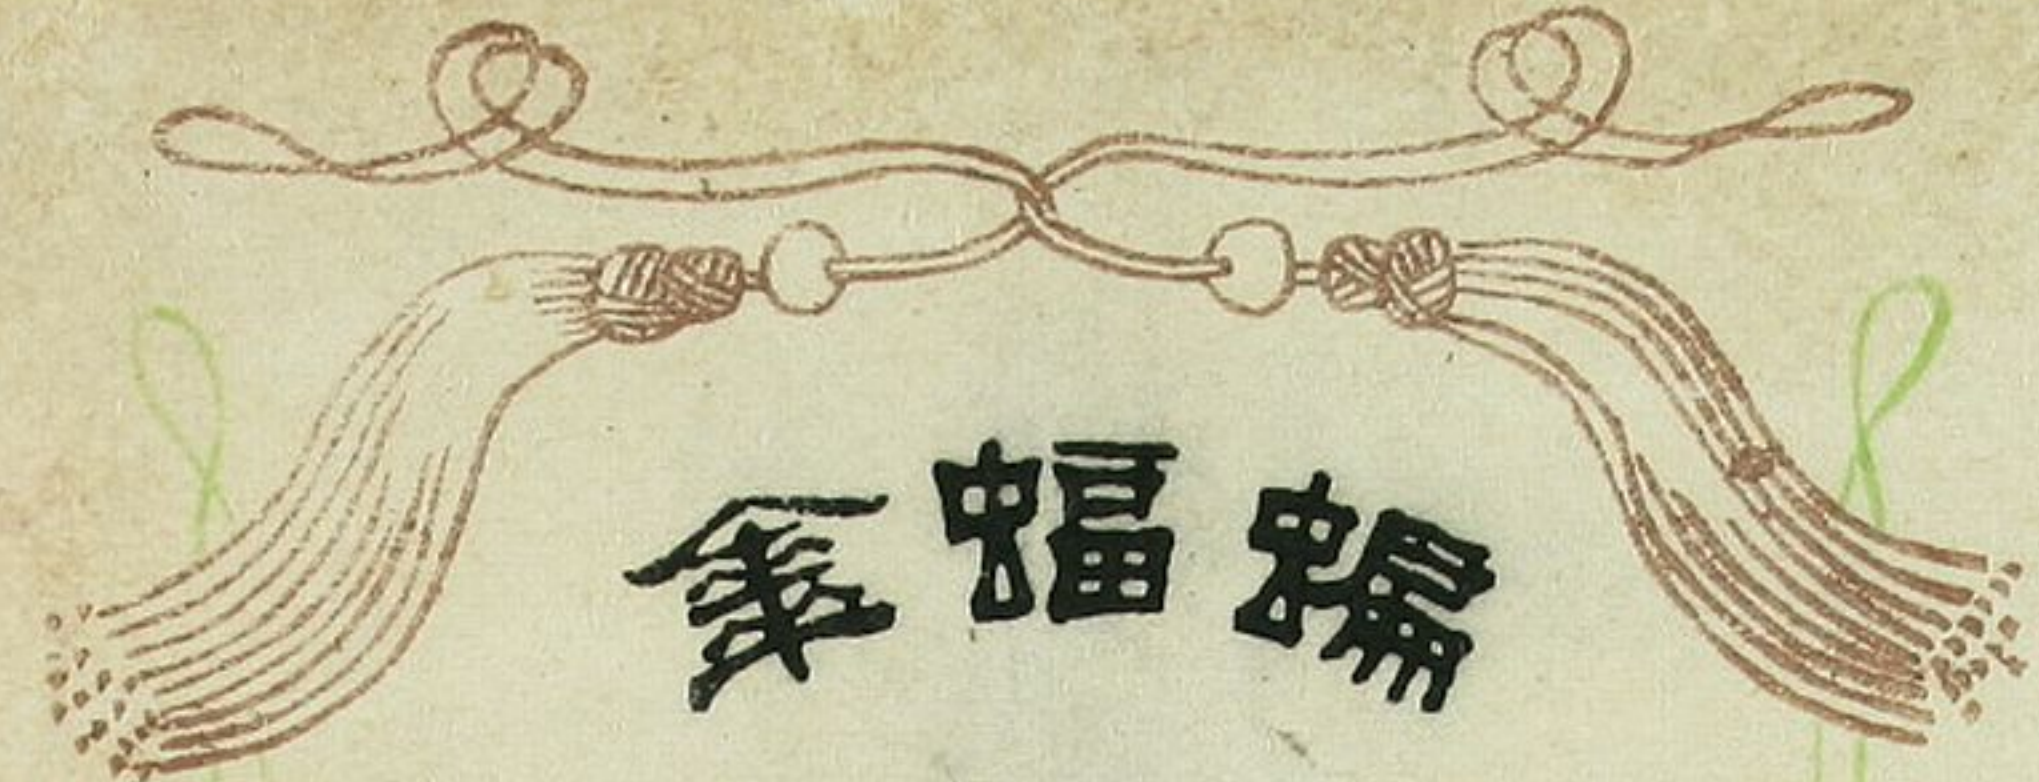 蝙蝠傘